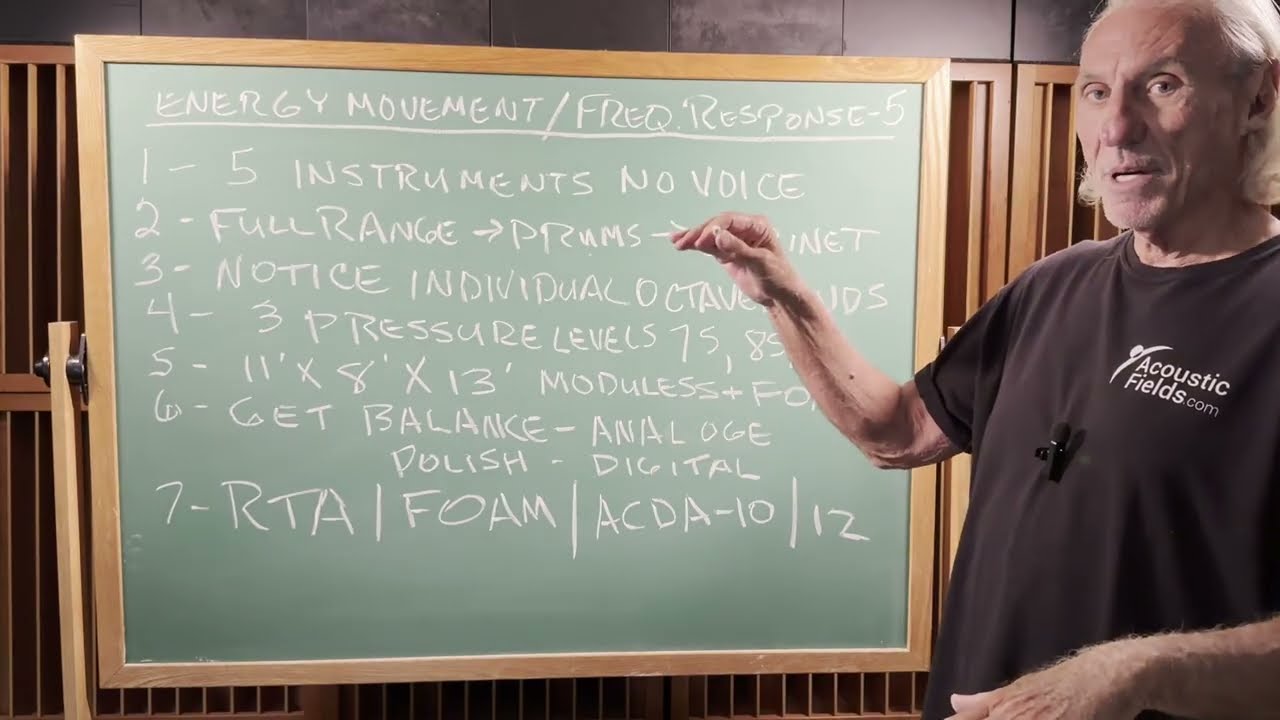 ENERGY MOVEMENT/FREQ. RESPONSE-5
1 - 5 INSTRUMENTS NO VOICE
2 - FULL RANGE → DRUMS →
3 - NOTICE INDIVIDUAL OCTAVE
4 - 3 PRESSURE LEVELS 75, 85
5 - 11' X 8' X 13' MODULESS +
6 - GET BALANCE - ANALOGE
POLISH - DIGITAL
7 - RTA | FOAM | ACDA-10 | 12
Acoustic
Fields.com